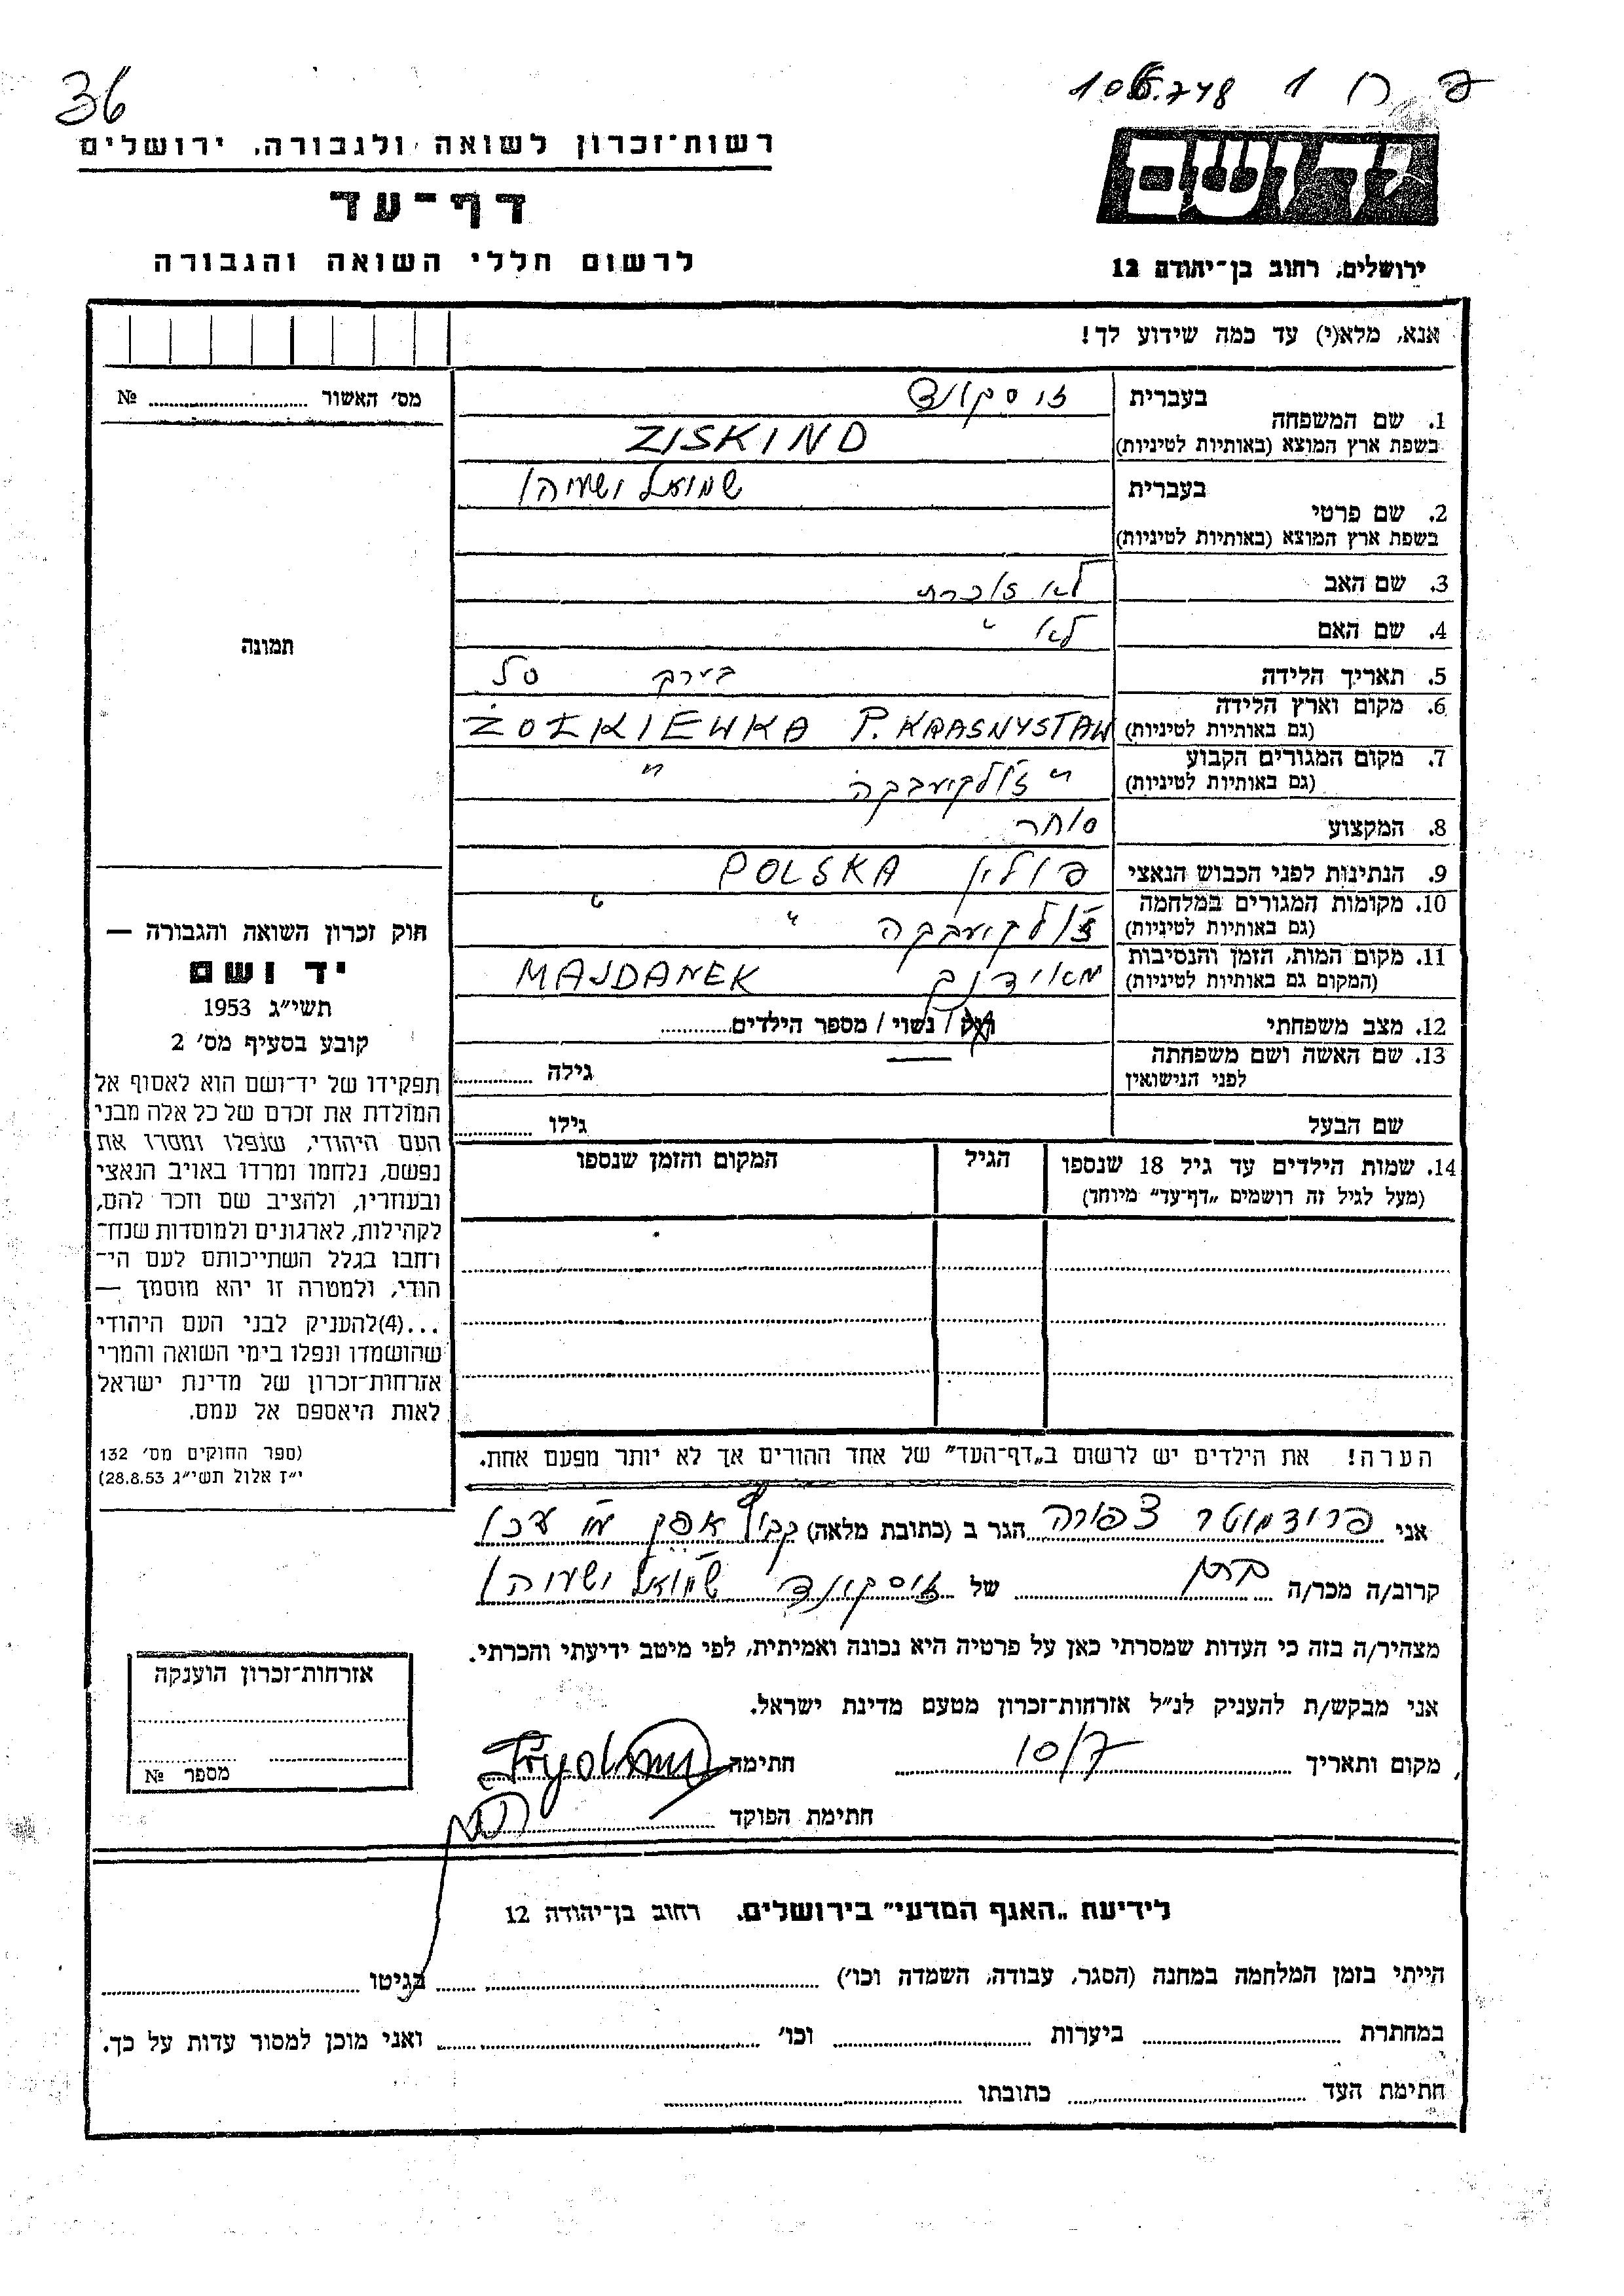 36
106.748 1
רשות־זכרון לשואה ולגבורה, ירושלים
דף־עד
לרשום חללי השואה והגבורה
יד ושם
ירושלים, רחוב בן־יהודה 12
אנא, מלא(י) עד כמה שידוע לך!
מס׳ האשור № 
1. שם המשפחה
בעברית זיסקונד
בשפת ארץ המוצא (באותיות לטיניות) ZISKIND
2. שם פרטי
בעברית שמואל ושעיהו
בשפת ארץ המוצא (באותיות לטיניות)
3. שם האב לא זוכרת
4. שם האם לא "
5. תאריך הלידה בערך
6. מקום וארץ הלידה
(גם באותיות לטיניות) ŻÓŁKIEWKA P. KRASNYSTAW
7. מקום המגורים הקבוע
(גם באותיות לטיניות) " ז'ולקיעבקה "
8. המקצוע סוחר
9. הנתינות לפני הכבוש הנאצי פולין POLSKA
10. מקומות המגורים במלחמה
(גם באותיות לטיניות) ז'ולקיעבקה " "
11. מקום המות, הזמן והנסיבות
(המקום גם באותיות לטיניות) מאידנק MAJDANEK
12. מצב משפחתי רווק / נשוי / מספר הילדים
13. שם האשה ושם משפחתה
לפני הנישואין גילה
שם הבעל גילו
14. שמות הילדים עד גיל 18 שנספו
(מעל לגיל זה רושמים „דף־עד״ מיוחד)
הגיל
המקום והזמן שנספו
תמונה
חוק זכרון השואה והגבורה —
יד ושם
תשי״ג 1953
קובע בסעיף מס׳ 2
תפקידו של יד־ושם הוא לאסוף אל
המולדת את זכרם של כל אלה מבני
העם היהודי, שנפלו ומסרו את
נפשם, נלחמו ומרדו באויב הנאצי
ובעוזריו, ולהציב שם וזכר להם,
לקהילות, לארגונים ולמוסדות שנח־
רחבו בגלל השתייכותם לעם הי־
הודי, ולמטרה זו יהא מוסמך —
...(4)להעניק לבני העם היהודי
שהושמדו ונפלו בימי השואה והמרי
אזרחות־זכרון של מדינת ישראל
לאות היאספם אל עמם.
(ספר החוקים מס׳ 132
י״ז אלול תשי״ג 28.8.53)
הערה! את הילדים יש לרשום ב„דף־העד״ של אחד ההורים אך לא יותר מפעם אחת.
אני פרידמוטר צפורה הגר ב (כתובת מלאה) אפק
קרוב/ה מכר/ה של זיסקונד שמואל ושעיהו
מצהיר/ה בזה כי העדות שמסרתי כאן על פרטיה היא נכונה ואמיתית, לפי מיטב ידיעתי והכרתי.
אני מבקש/ת להעניק לנ״ל אזרחות־זכרון מטעם מדינת ישראל.
מקום ותאריך 10/7 חתימה
חתימת הפוקד
אזרחות־זכרון הוענקה
מספר №
לידיעת „האגף המדעי״ בירושלים, רחוב בן־יהודה 12
הייתי בזמן המלחמה במחנה (הסגר, עבודה, השמדה וכו׳) בגיטו
במחתרת ביערות וכו׳ ואני מוכן למסור עדות על כך.
חתימת העד כתובתו